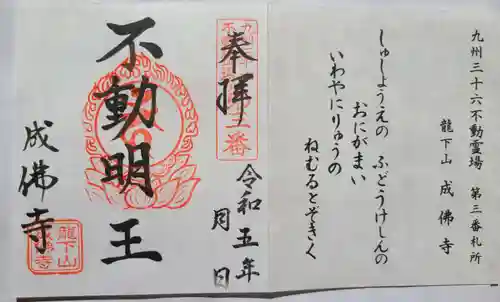 九州三十六不動霊場　第三番札所
龍下山　成佛寺
しゅしょうえの　ふどうけしんの
おにがまい
いわやにりゅうの
ねむるとぞきく
奉拝
令和五年
月　日
不動明王
成佛寺
龍下山